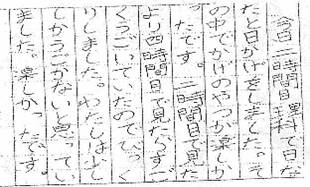 今日二時間目理科で日な
たと日かげをしました。そ
の中でかげのやつが楽しか
ったです。二時間目で見た
より四時間目で見たらすご
くうごいていたのでびっく
りしました。わたしは少し
しかうごかないと思ってい
ました。楽しかったです。